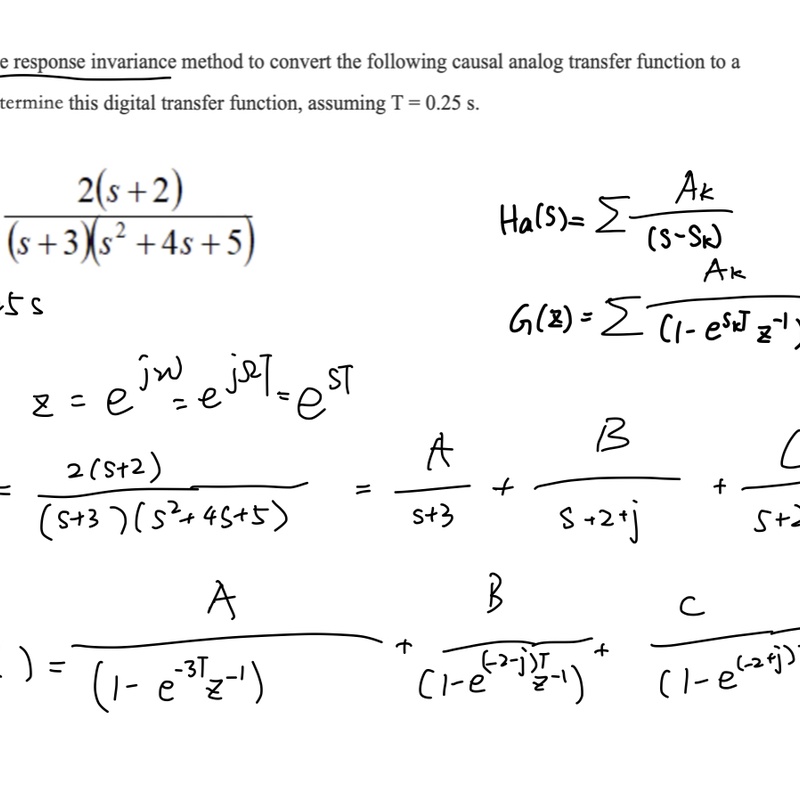 e response invariance method to convert the following causal analog transfer function to a
termine this digital transfer function, assuming T = 0.25 s.
2(s+2) / (s+3)(s² +4s+5)
Ha(s)= Σ Ak / (s-Sk)
.5 s
G(z) = Σ Ak / (1- e^SkT z^-1)
z = e^jω = e^jΩT = e^ST
= 2(s+2) / (s+3)(s²+4s+5) = A / s+3 + B / s+2+j + C / s+2
) = A / (1- e^-3T z^-1) + B / (1-e^(-2-j)T z^-1) + C / (1-e^(-2+j)